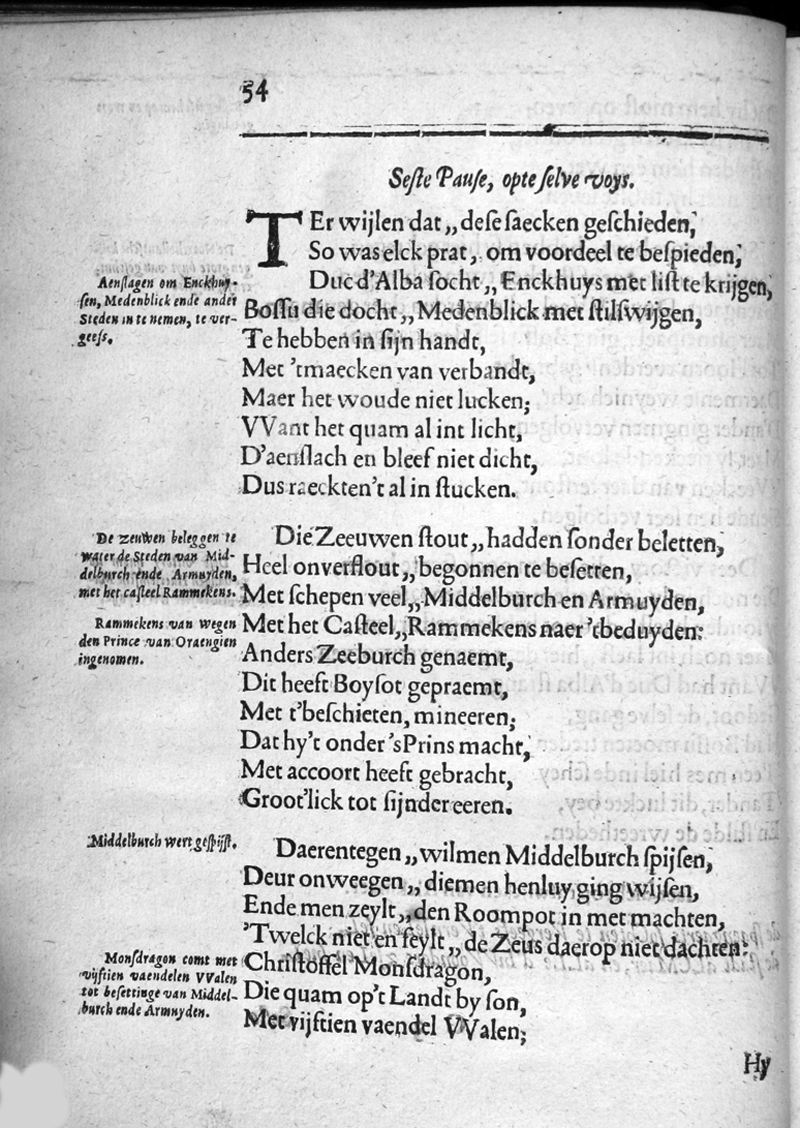 54
Seste Pause, opte selve voys.
TEr wijlen dat „ dese saecken geschieden,
So was elck prat, om voordeel te bespieden,
Duc d'Alba socht „ Enckhuys met list te krijgen,
Bossu die docht „ Medenblick met stilswijgen,
Te hebben in sijn handt,
Met 'tmaecken van verbandt,
Maer het woude niet lucken;
VVant het quam al int licht,
D'aenslach en bleef niet dicht,
Dus raeckten't al in stucken.
Aenslagen om Enckhuy-
sen, Medenblick ende ander
Steden in te nemen, te ver-
geefs.
Die Zeeuwen stout „ hadden sonder beletten,
Heel onverflout „ begonnen te besetten,
Met schepen veel „ Middelburch en Armuyden,
Met het Casteel „ Rammekens naer 'tbeduyden:
Anders Zeeburch genaemt,
Dit heeft Boysot gepraemt,
Met t'beschieten, mineeren;
Dat hy't onder 'sPrins macht,
Met accoort heeft gebracht,
Groot'lick tot sijnder eeren.
De zeuwen beleggen te
water de Steden van Mid-
delburch ende Armuyden,
met het casteel Rammekens.
Rammekens van wegen
den Prince van Oraengien
ingenomen.
Daerentegen „ wilmen Middelburch spijsen,
Deur onweegen „ diemen henluy ging wijsen,
Ende men zeylt „ den Roompot in met machten,
'Twelck niet en feylt „ de Zeus daerop niet dachten:
Christoffel Monsdragon,
Die quam op't Landt by son,
Met vijftien vaendel VValen;
Middelburch wert gespijst.
Monsdragon comt met
vijftien vaendelen VValen
tot besettinge van Middel-
burch ende Armuyden.
Hy